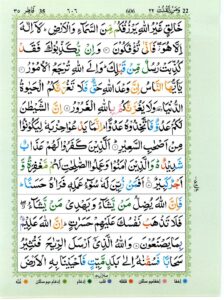 22 وَمَنْ يَّقْنُتْ ٢٢ 606 ٦٠٦ 35 فَاطِر ٣٥
خَالِقٍ غَيْرُ اللهِ يَرْزُقُكُمْ مِّنَ السَّمَآءِ وَالْاَرْضِ ؕ لَاۤ اِلٰهَ
اِلَّا هُوَ ۖ فَاَنّٰى تُؤْفَكُوْنَ ۝ وَاِنْ يُّكَذِّبُوْكَ فَقَدْ
كُذِّبَتْ رُسُلٌ مِّنْ قَبْلِكَ ؕ وَاِلَى اللهِ تُرْجَعُ الْاُمُوْرُ ۝
يٰۤاَيُّهَا النَّاسُ اِنَّ وَعْدَ اللهِ حَقٌّ فَلَا تَغُرَّنَّكُمُ الْحَيٰوةُ
الدُّنْيَا ۥ وَلَا يَغُرَّنَّكُمْ بِاللهِ الْغَرُوْرُ ۝ اِنَّ الشَّيْطٰنَ
لَكُمْ عَدُوٌّ فَاتَّخِذُوْهُ عَدُوًّا ؕ اِنَّمَا يَدْعُوْا حِزْبَهٗ لِيَكُوْنُوْا
مِنْ اَصْحٰبِ السَّعِيْرِ ۝ اَلَّذِيْنَ كَفَرُوْا لَهُمْ عَذَابٌ
شَدِيْدٌ ؕ وَالَّذِيْنَ اٰمَنُوْا وَعَمِلُوا الصّٰلِحٰتِ لَهُمْ مَّغْفِرَةٌ وَّ
اَجْرٌ كَبِيْرٌ ۝ اَفَمَنْ زُيِّنَ لَهٗ سُوْٓءُ عَمَلِهٖ فَرَاٰهُ حَسَنًا ؕ
فَاِنَّ اللهَ يُضِلُّ مَنْ يَّشَآءُ وَيَهْدِيْ مَنْ يَّشَآءُ ۖ
فَلَا تَذْهَبْ نَفْسُكَ عَلَيْهِمْ حَسَرٰتٍ ؕ اِنَّ اللهَ عَلِيْمٌۢ
بِمَا يَصْنَعُوْنَ ۝ وَاللهُ الَّذِيْۤ اَرْسَلَ الرِّيٰحَ فَتُثِيْرُ
سَحَابًا فَسُقْنٰهُ اِلٰى بَلَدٍ مَّيِّتٍ فَاَحْيَيْنَا بِهِ الْاَرْضَ